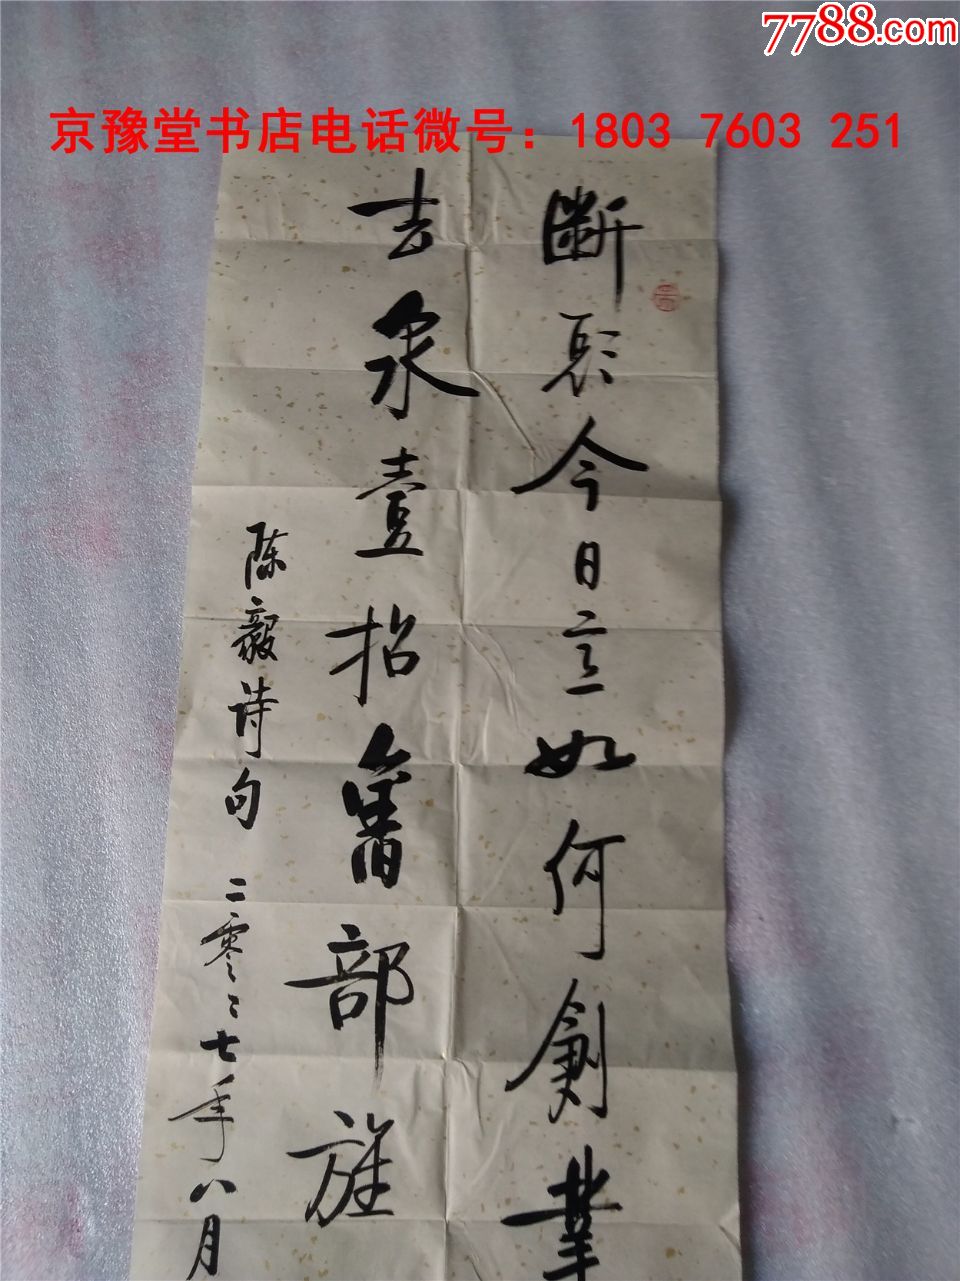 7788.com
京豫堂书店电话微号：1803 7603 251
斷頭今日意如何創業
去泉臺招舊部旌
陈毅诗句 二零零七年八月